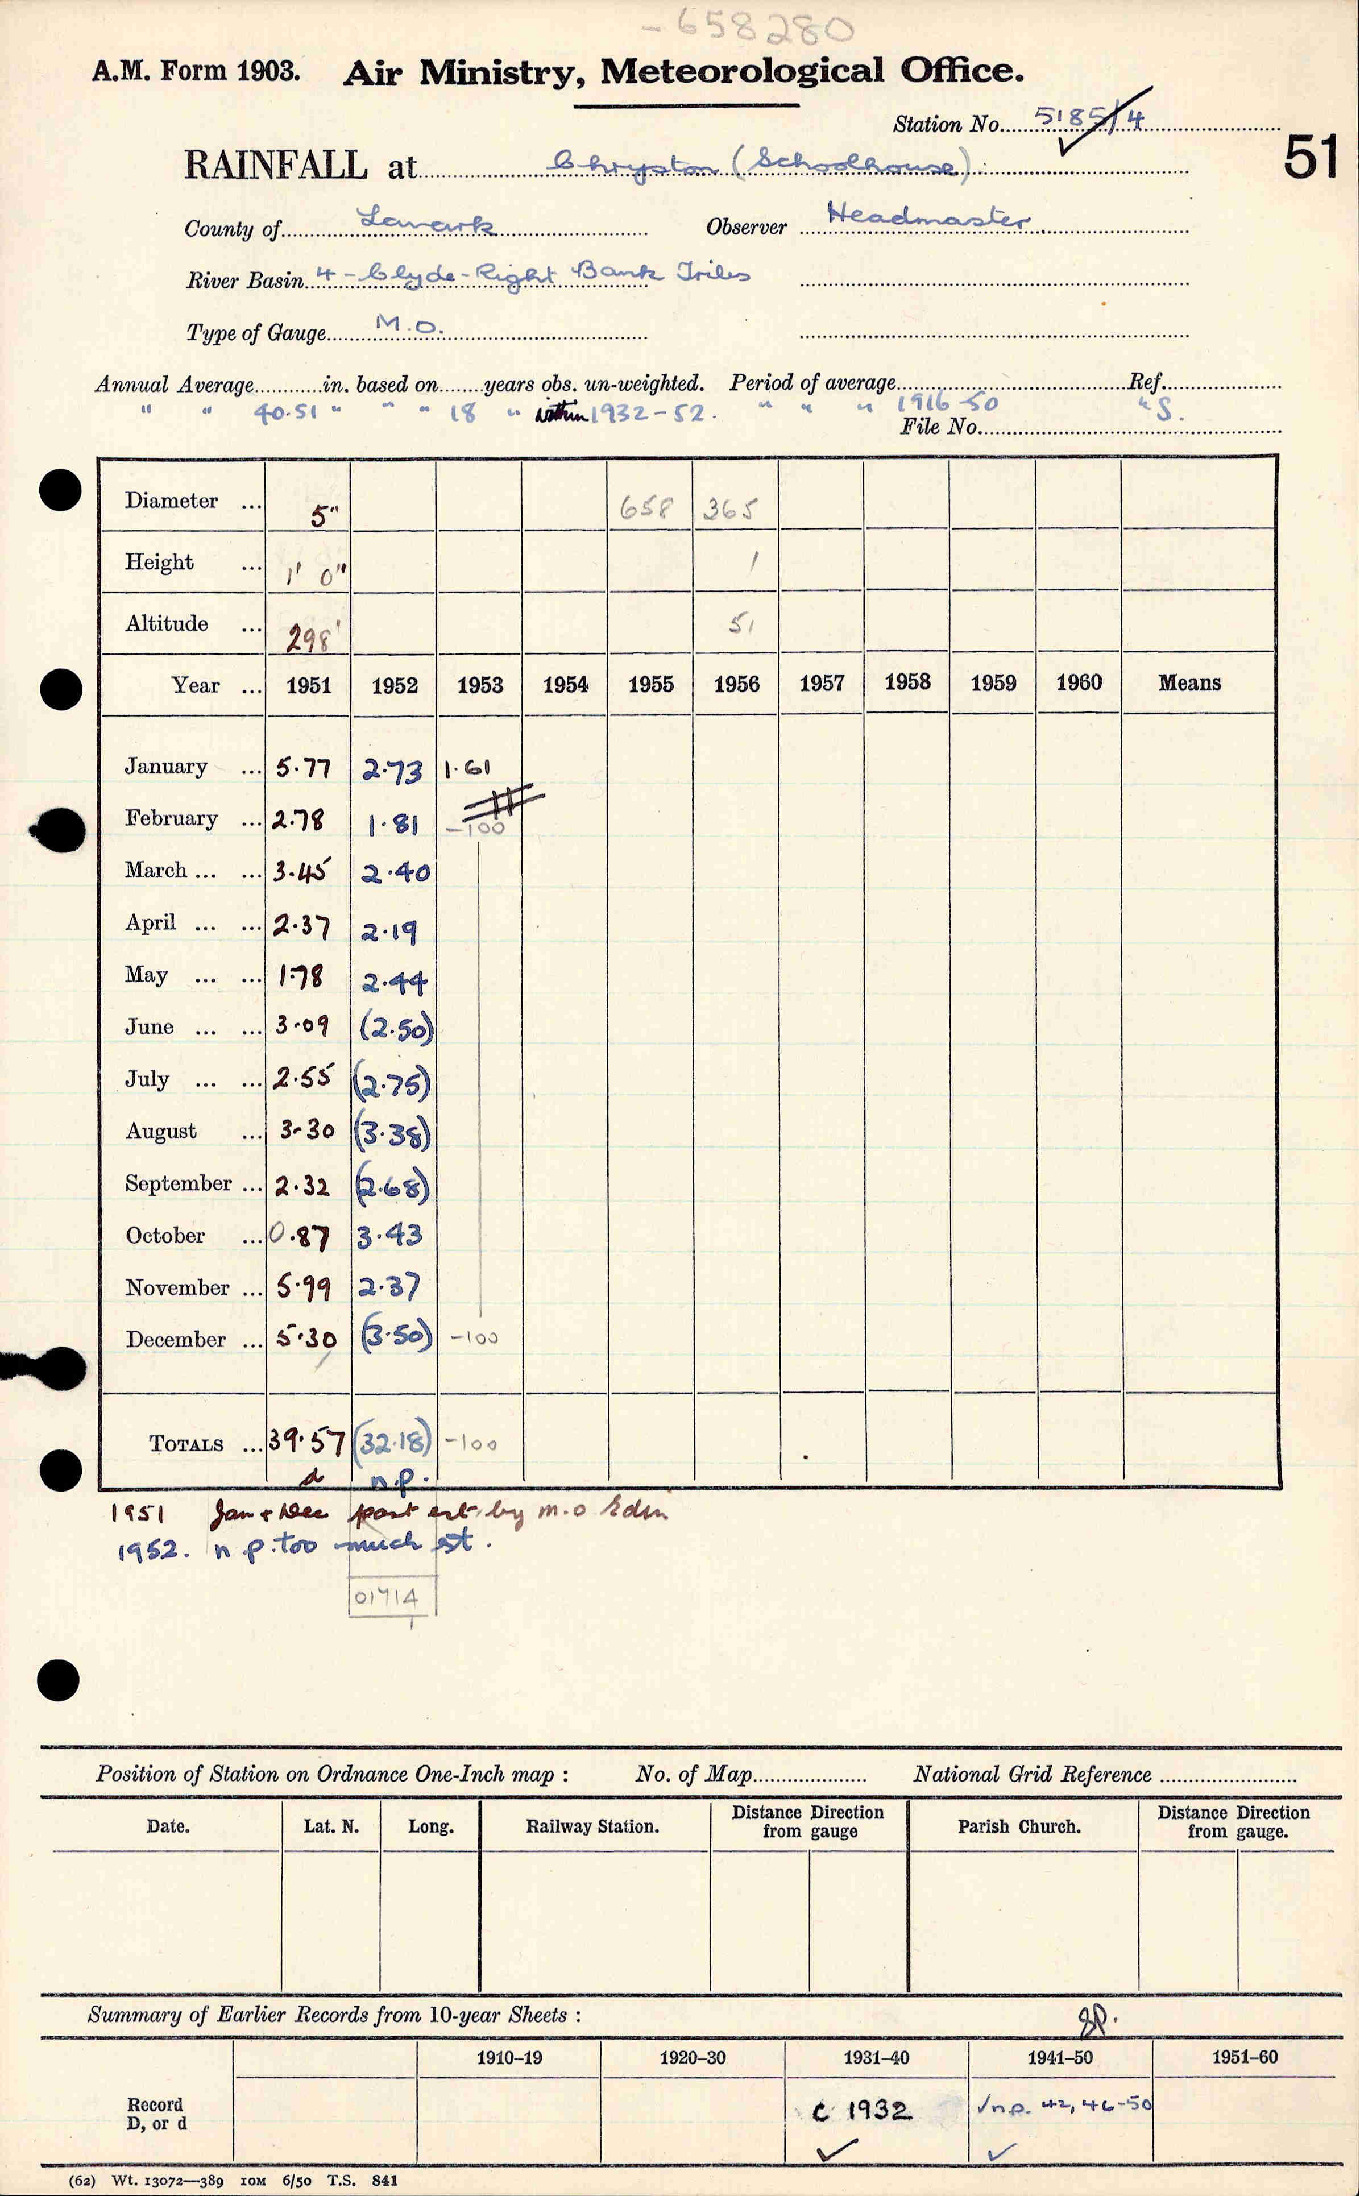 -658280
A.M. Form 1903. Air Ministry, Meteorological Office.
Station No. 5185/4
51
RAINFALL at Chryston (Schoolhouse)
County of Lanark Observer Headmaster
River Basin 4 - Clyde - Right Bank Tribs
Type of Gauge M.O.
Annual Average in. based on years obs. un-weighted. Period of average Ref.
" " 40.51 " " " 18 " within 1932-52. " " " 1916-50 " S.
File No.
Diameter ... 5" 658 365
Height ... 1' 0" 1
Altitude ... 298' 51
Year ... 1951 1952 1953 1954 1955 1956 1957 1958 1959 1960 Means
January ... 5.77 2.73 1.61
February ... 2.78 1.81 -100
March ... ... 3.45 2.40
April ... ... 2.37 2.19
May ... ... 1.78 2.44
June ... ... 3.09 (2.50)
July ... ... 2.55 (2.75)
August ... 3.30 (3.38)
September ... 2.32 (2.68)
October ... 0.87 3.43
November ... 5.99 2.37
December ... 5.30 (3.50) -100
TOTALS ... 39.57 (32.18) -100
d n.p.
1951 Jan & Dec part est. by M.O Edin
1952. n.p. too much est.
01714
Position of Station on Ordnance One-Inch map : No. of Map National Grid Reference
Date. Lat. N. Long. Railway Station. Distance Direction from gauge Parish Church. Distance Direction from gauge.
Summary of Earlier Records from 10-year Sheets :
1910-19 1920-30 1931-40 1941-50 1951-60
Record D, or d C 1932 ✓ ✓n.p. 42, 46-50 ✓
(62) Wt. 13072—389 10M 6/50 T.S. 841